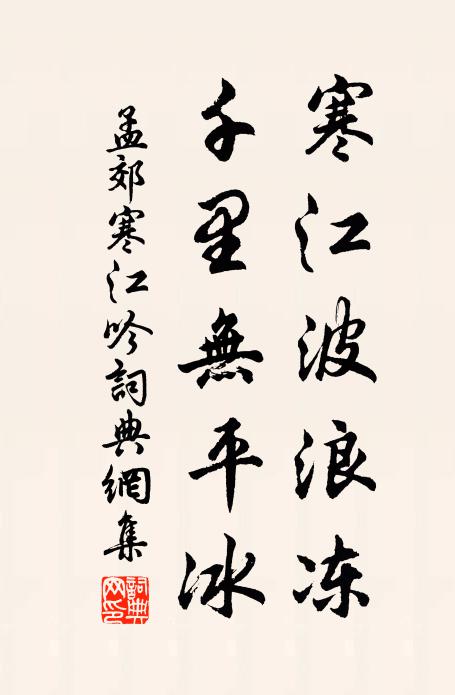 寒江波浪冻
千里無平冰
孟郊寒江吟詞典網集
詞典網印